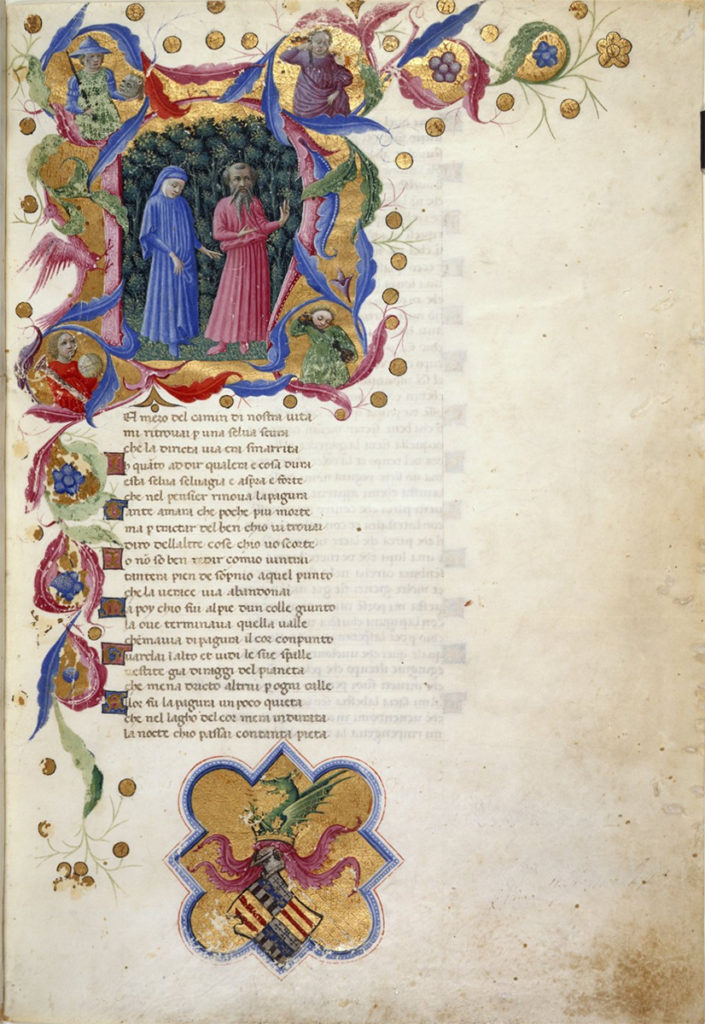 El mezo del camin di nostra vita
mi ritrovai p una selva scura
che la diricta via era smarrita
h quāto ad dir qualera e cosa dura
esta selva selvagia e aspra e forte
che nel pensier rinova la pagura
ante amara che poche piu morte
ma p tractar del ben chio vi trovai
diro dellaltre cose chio vo scorte
o nō so ben redir comio vintrai
tantera pien de sōpnio aquel punto
che la verice via abandonai
a poy chio fui al pie dun colle giunto
la ove terminava quella valle
chemavia di pagura il cor conpunto
uardai lalto et vidi le sue spalle
vestite gia di raggi del pianeta
che mena dricto altrui p ogni calle
llor fu la pagura un poco queta
che nel lagho del cor mera indurata
la nocte chio passai contanta pieta